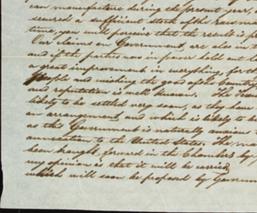 can manufacture during the present year,
secured a sufficient stock of the raw
time, you will perceive that the result is
Our claims on Government, are also in
and if the parties now in favor hold out
a great improvement in everything, for the
people and
and reputation is well known. The
likely to be settled very soon, as they have
an arrangement, and which is likely to be
as this Government is naturally anxious
annexation to the United States. The
been brought forward in the Chambers by
my opinion is that it will be carried
which will soon be proposed by Government